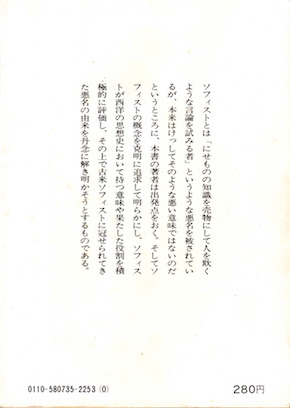 ソフィストとは「にせものの知識を売物にして人を欺く
ような言論を試みる者」というような悪名を被されてい
るが、本来はけっしてそのような悪い意味ではないのだ
というところに、本書の著者は出発点をおく。そしてソ
フィストの概念を克明に追求して明らかにし、ソフィス
トが西洋の思想史において持つ意味や果たした役割を積
極的に評価し、その上で古来ソフィストに冠せられてき
た悪名の由来を丹念に解き明かそうとするものである。
0110-580735-2253(0)
280円